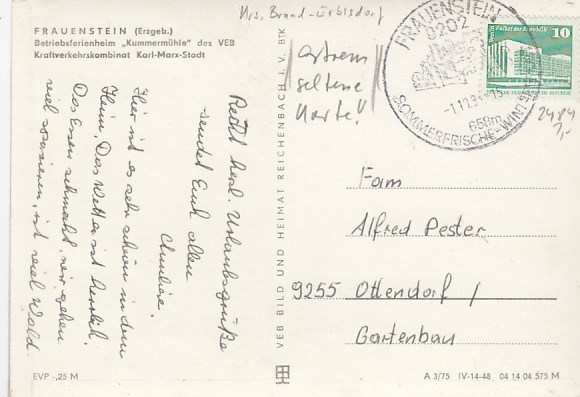 Krs. Brand-Erbisdorf
FRAUENSTEIN (Erzgeb.)
Betriebsferienheim „Kummermühle" des VEB
Kraftverkehrskombinat Karl-Marx-Stadt
extrem
seltene
Karte!
FRAUENSTEIN
9202
650m
SOMMERFRISCHE-WINTERSPORT
10
Palast der Republik
2484
1,-
Recht herzl. Urlaubsgrüße
sendet Euch allen
Hier ist es sehr schön in dem
Heim. Das Wetter ist herrlich.
Das Essen schmeckt, wir gehen
viel spazieren, ist viel Wald.
VEB BILD UND HEIMAT REICHENBACH i. V. BTK
Fam
Alfred Pester
9255 Ottendorf /
Gartenbau
EVP -,25 M
A 3/75 IV-14-48 04 14 04 575 M